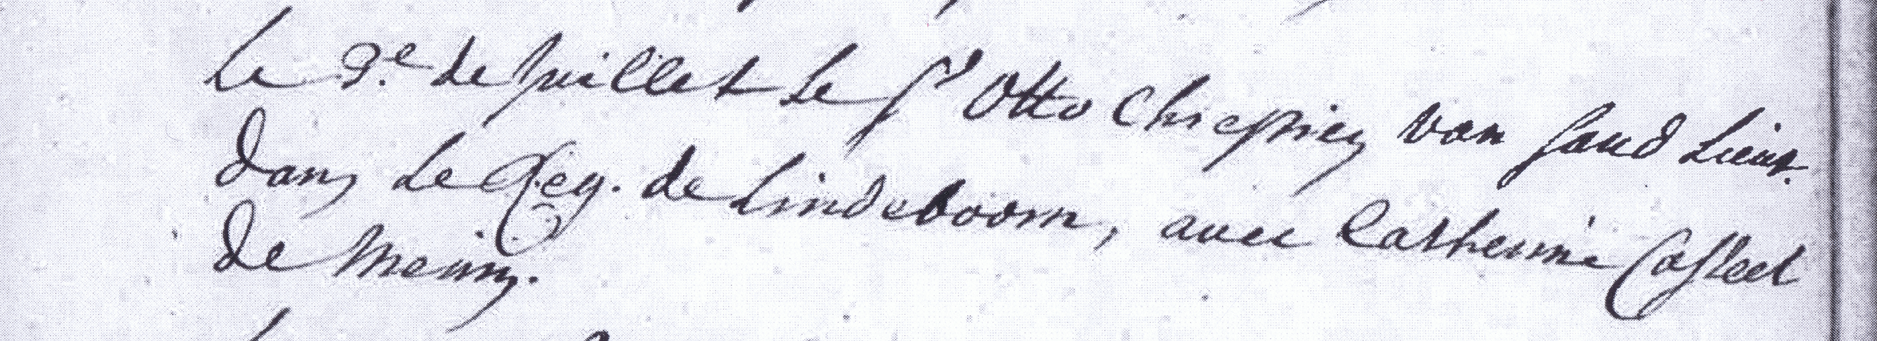 Le 9.e de Juillet Le Sr Otto Chrestien van Sand Lieut.
dans Le Reg. de Lindeboom, avec Catherine Casteel
de Menin.